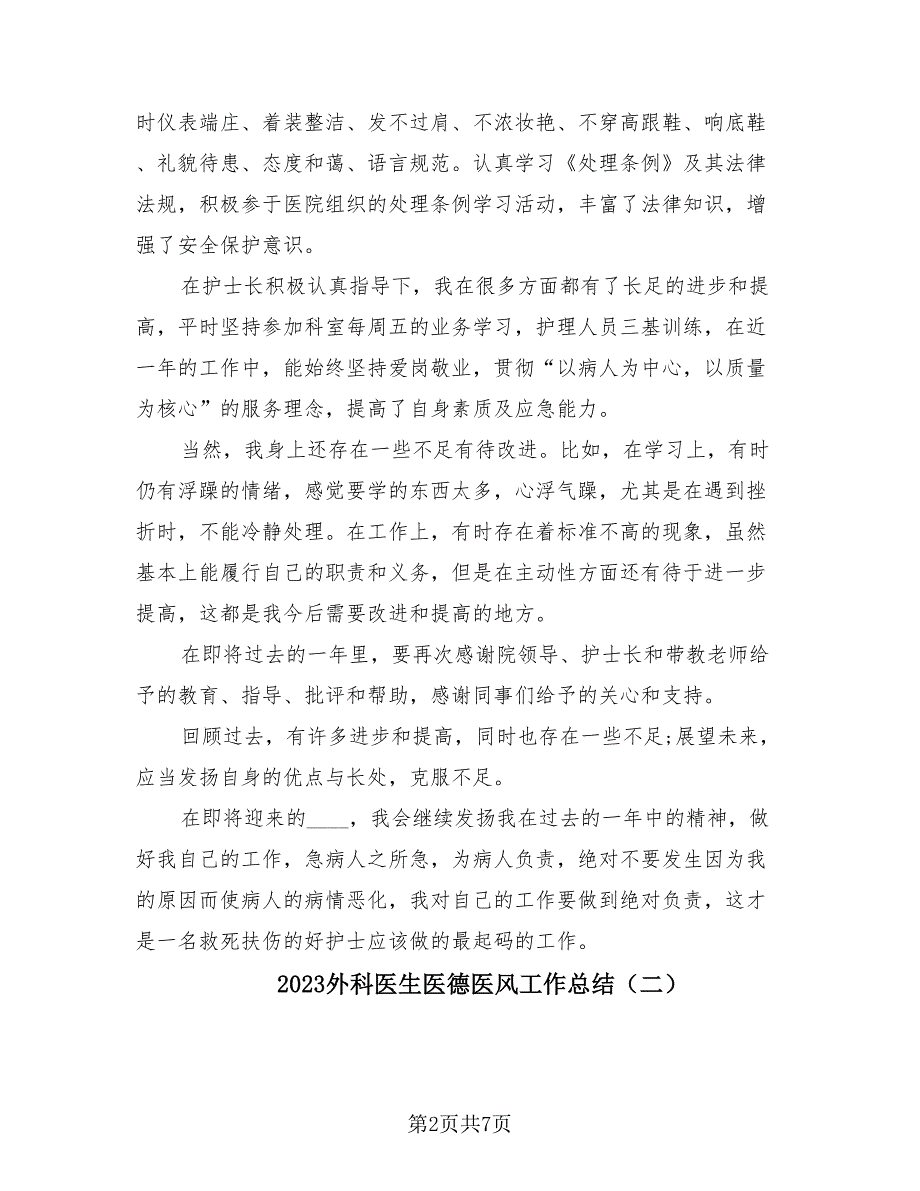 时仪表端庄、着装整洁、发不过肩、不浓妆艳、不穿高跟鞋、响底鞋
、礼貌待患、态度和蔼、语言规范。认真学习《处理条例》及其法律
法规，积极参于医院组织的处理条例学习活动，丰富了法律知识，增
强了安全保护意识。
在护士长积极认真指导下，我在很多方面都有了长足的进步和提
高，平时坚持参加科室每周五的业务学习，护理人员三基训练，在近
一年的工作中，能始终坚持爱岗敬业，贯彻“以病人为中心，以质量
为核心”的服务理念，提高了自身素质及应急能力。
当然，我身上还存在一些不足有待改进。比如，在学习上，有时
仍有浮躁的情绪，感觉要学的东西太多，心浮气躁，尤其是在遇到挫
折时，不能冷静处理。在工作上，有时存在着标准不高的现象，虽然
基本上能履行自己的职责和义务，但是在主动性方面还有待于进一步
提高，这都是我今后需要改进和提高的地方。
在即将过去的一年里，要再次感谢院领导、护士长和带教老师给
予的教育、指导、批评和帮助，感谢同事们给予的关心和支持。
回顾过去，有许多进步和提高，同时也存在一些不足;展望未来，
应当发扬自身的优点与长处，克服不足。
在即将迎来的____，我会继续发扬我在过去的一年中的精神，做
好我自己的工作，急病人之所急，为病人负责，绝对不要发生因为我
的原因而使病人的病情恶化，我对自己的工作要做到绝对负责，这才
是一名救死扶伤的好护士应该做的最起码的工作。
2023外科医生医德医风工作总结（二）
第2页共7页